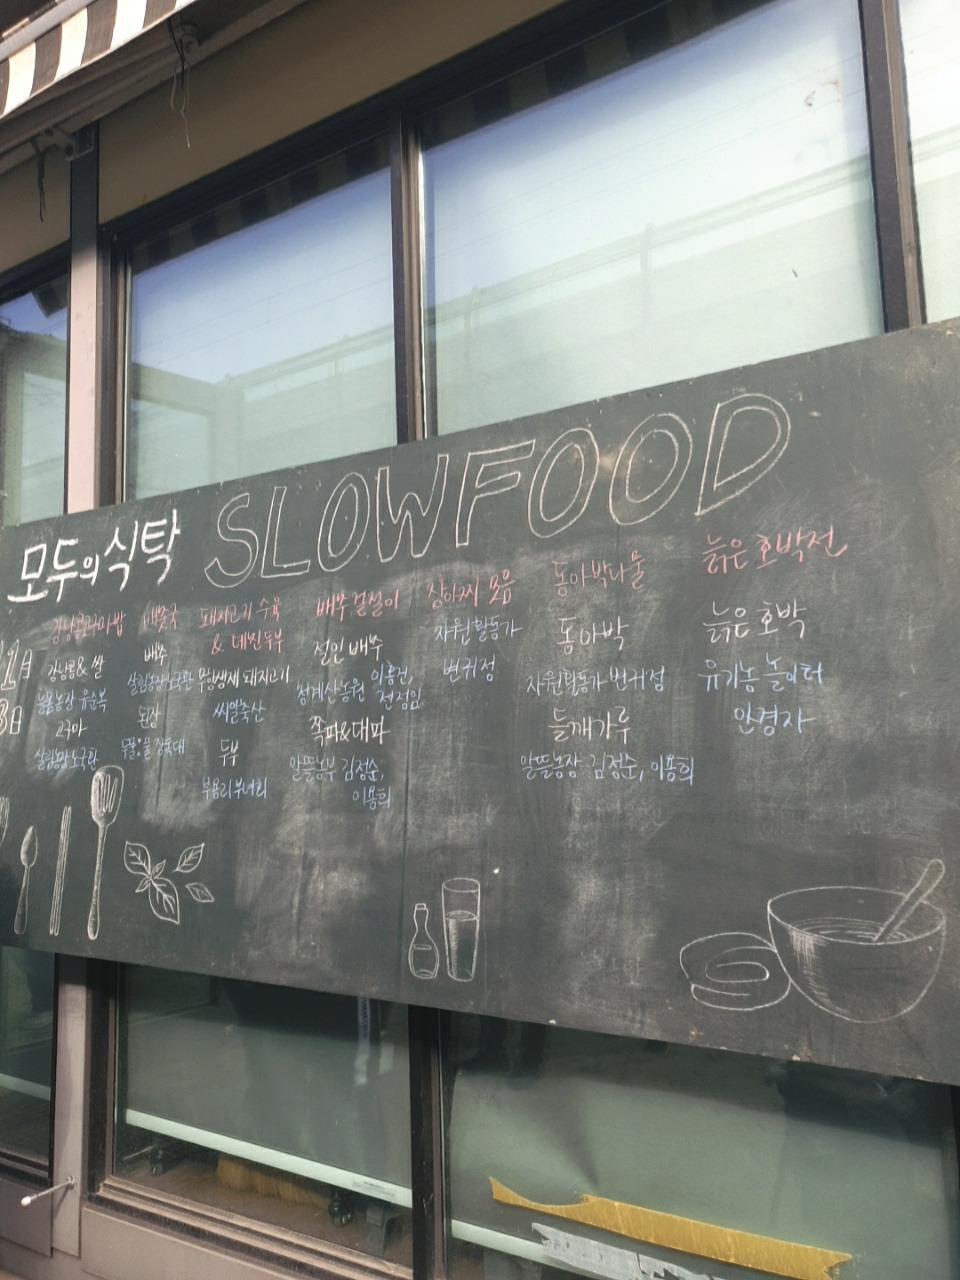 모두의식탁 SLOWFOOD
1월
3일
강낭콩고구마밥
강낭콩& 쌀
유순복
고구마
노국환
배춧국
배추
살림농장 노국환
된장
돼지고기 수육
& 데친두부
무항생제 돼지고기
씨알축산
두부
부용리부녀회
배추 겉절이
절인 배추
청계산농원 이홍건,
전정임
쪽파&대파
알뜰농부 김정순,
이용희
장아찌 모음
자원활동가
변귀정
동아박나물
동아박
자원활동가 변귀정
들깨가루
알뜰농장 김정순, 이용희
늙은 호박전
늙은 호박
유기농 놀이터
안경자